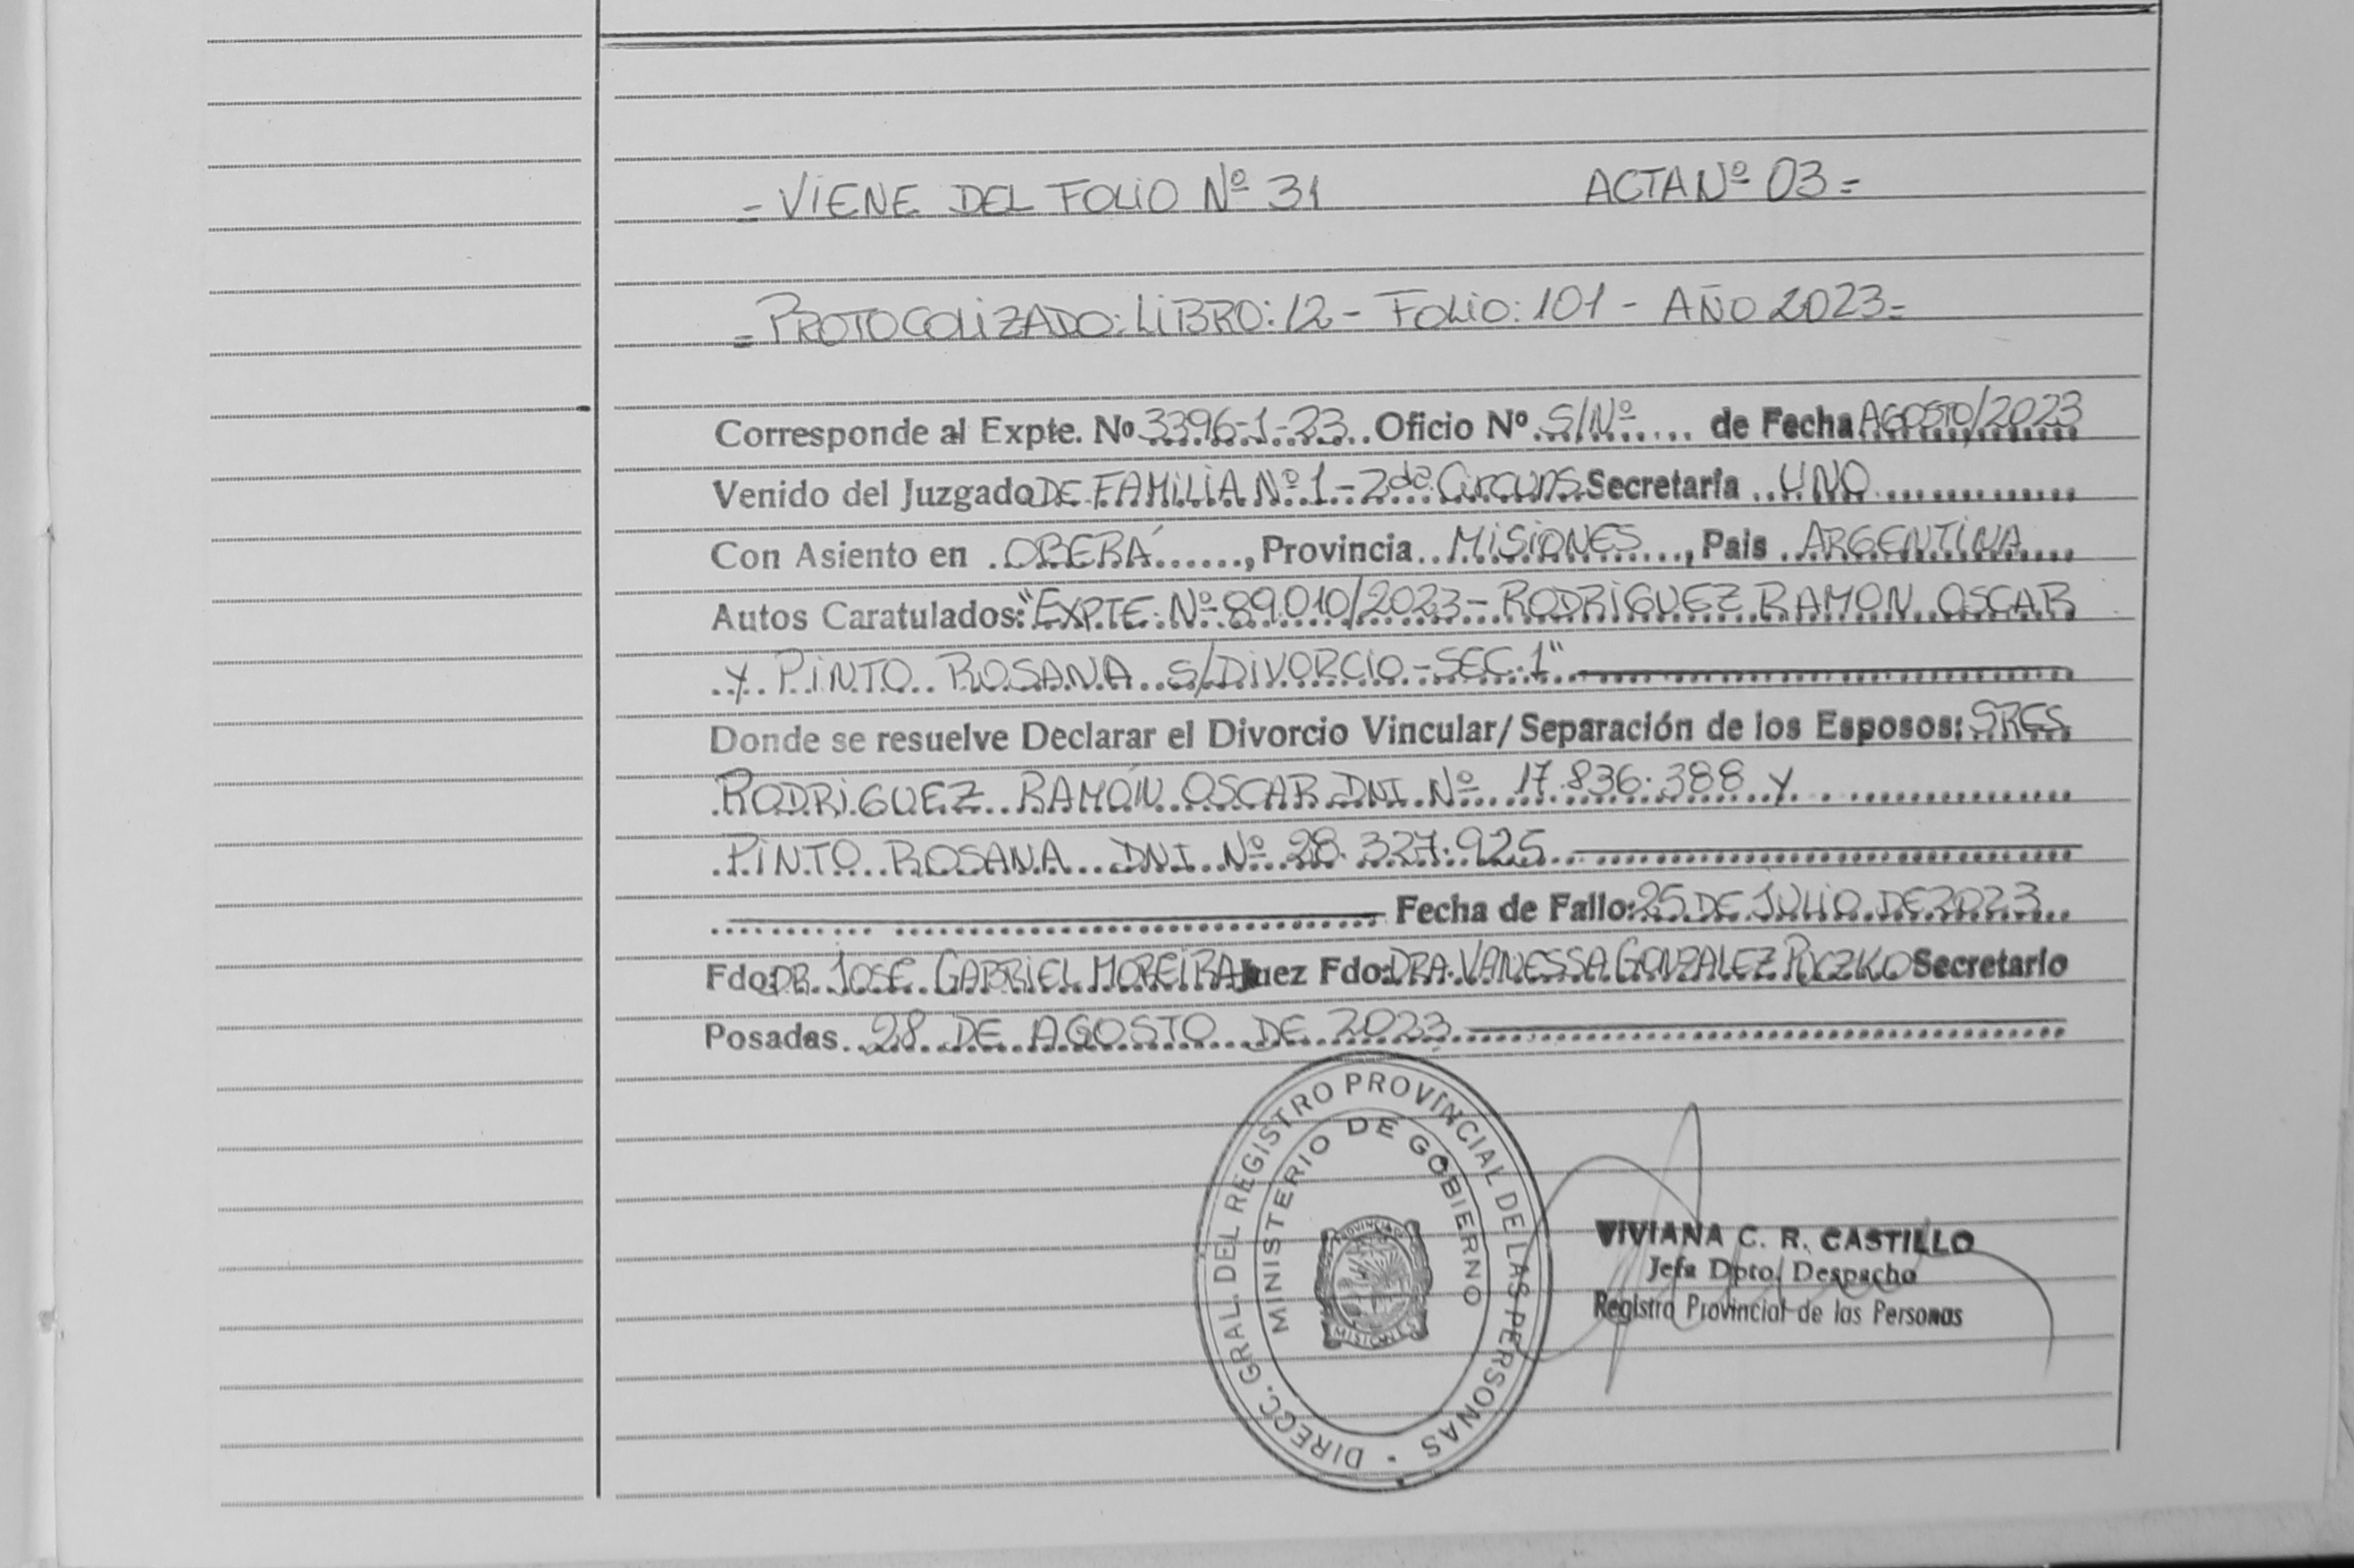 = VIENE DEL FOLIO Nº 31 ACTA Nº 03 =
= PROTOCOLIZADO: LIBRO: 12 - FOLIO: 101 - AÑO 2023 =
Corresponde al Expte. Nº 3396-1-23 Oficio Nº S/Nº de Fecha AGOSTO/2023
Venido del Juzgado DE FAMILIA Nº 1 - 2da Circuns. Secretaría UNO
Con Asiento en OBERÁ, Provincia MISIONES, País ARGENTINA
Autos Caratulados: "EXPTE. Nº 89.010/2023 - RODRIGUEZ RAMON OSCAR
Y PINTO ROSANA S/DIVORCIO - SEC. 1"
Donde se resuelve Declarar el Divorcio Vincular/Separación de los Esposos: SRES
RODRIGUEZ RAMÓN OSCAR DNI Nº 17.836.388 y
PINTO ROSANA DNI Nº 28.327.925
Fecha de Fallo: 25 DE JULIO DE 2023
Fdo: DR. JOSE GABRIEL MOREIRA Juez Fdo: DRA. VANESSA GONZALEZ Secretario
Posadas 28 DE AGOSTO DE 2023
DIRECC. GRAL. DEL REGISTRO PROVINCIAL DE LAS PERSONAS
MINISTERIO DE GOBIERNO
PROVINCIA
MISIONES
VIVIANA C. R. CASTILLO
Jefa Dpto. Despacho
Registro Provincial de las Personas